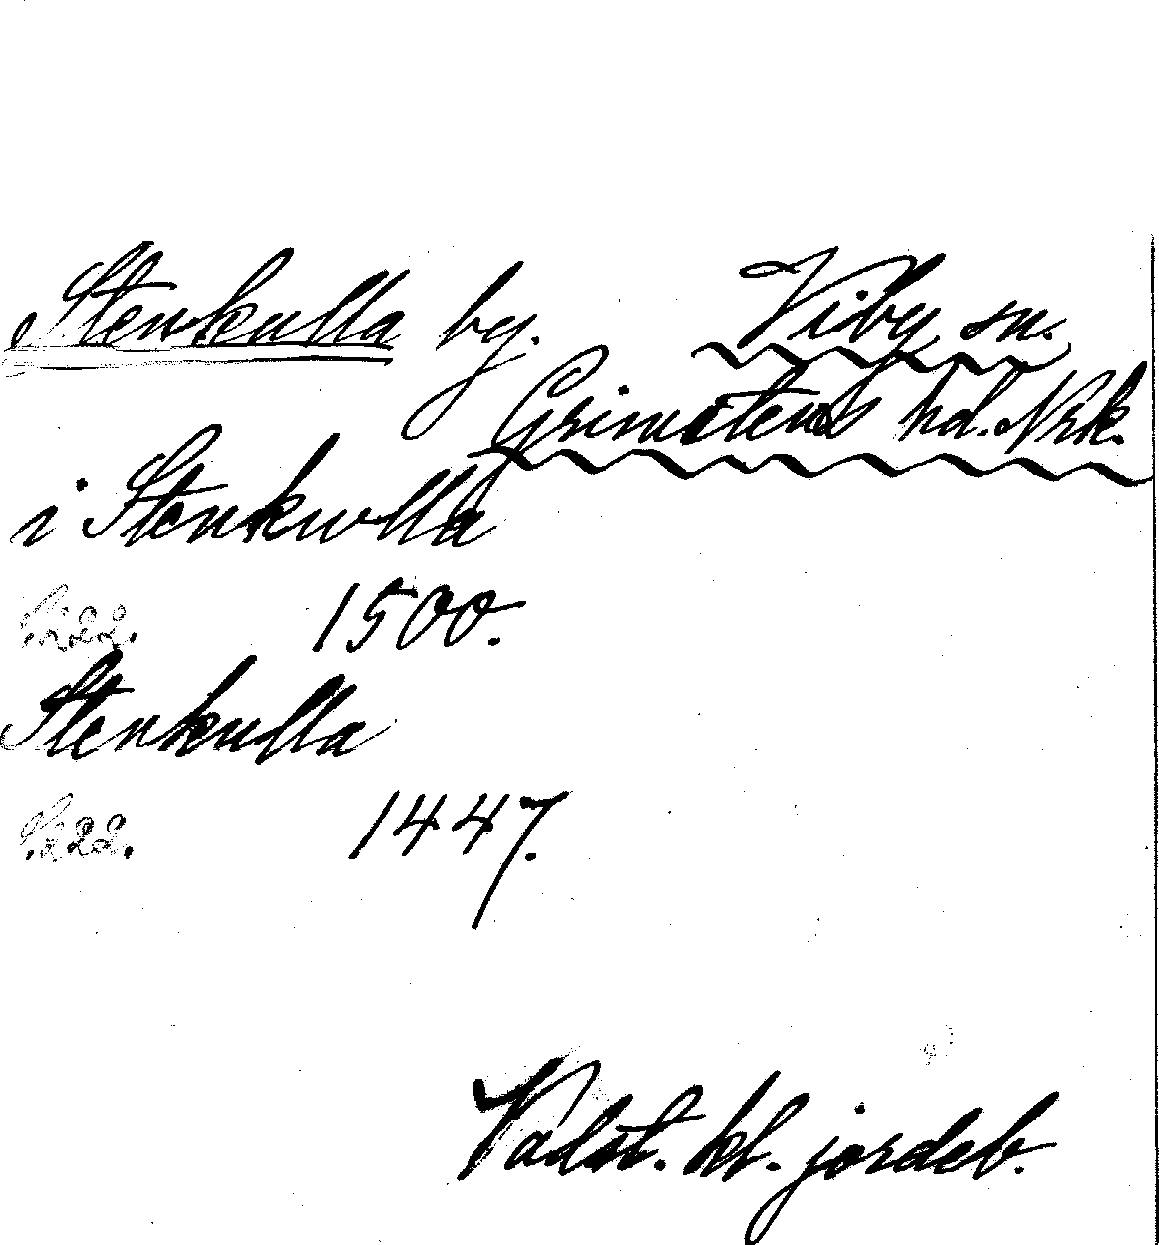 Stenkulla by. Viby sn.
Grimstens hd. Nrk.
i Stenkulla
S. 222. 1500.
Stenkulla
1447.
Vadst. kl. jordeb.